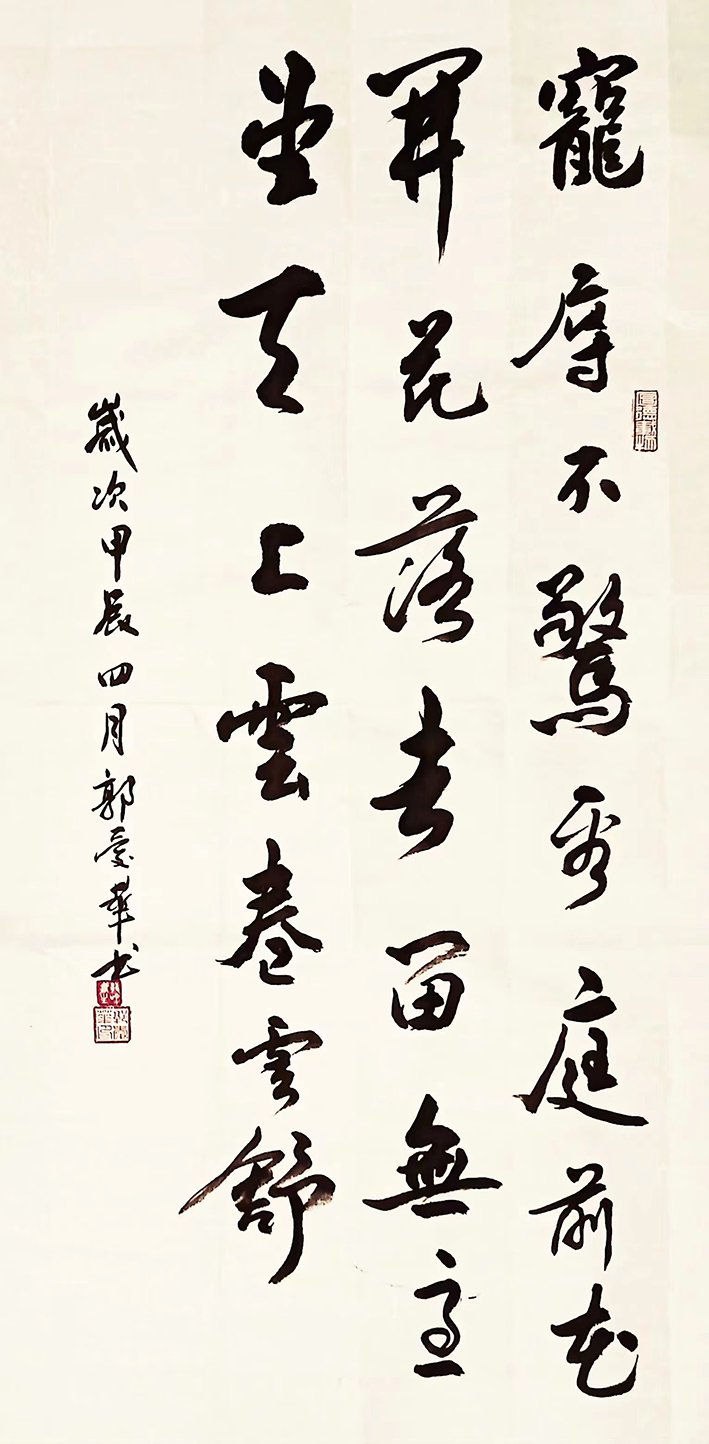 寵辱不驚看庭前花
開花落去留無意
望天上雲卷雲舒
歲次甲辰四月郭愛華書